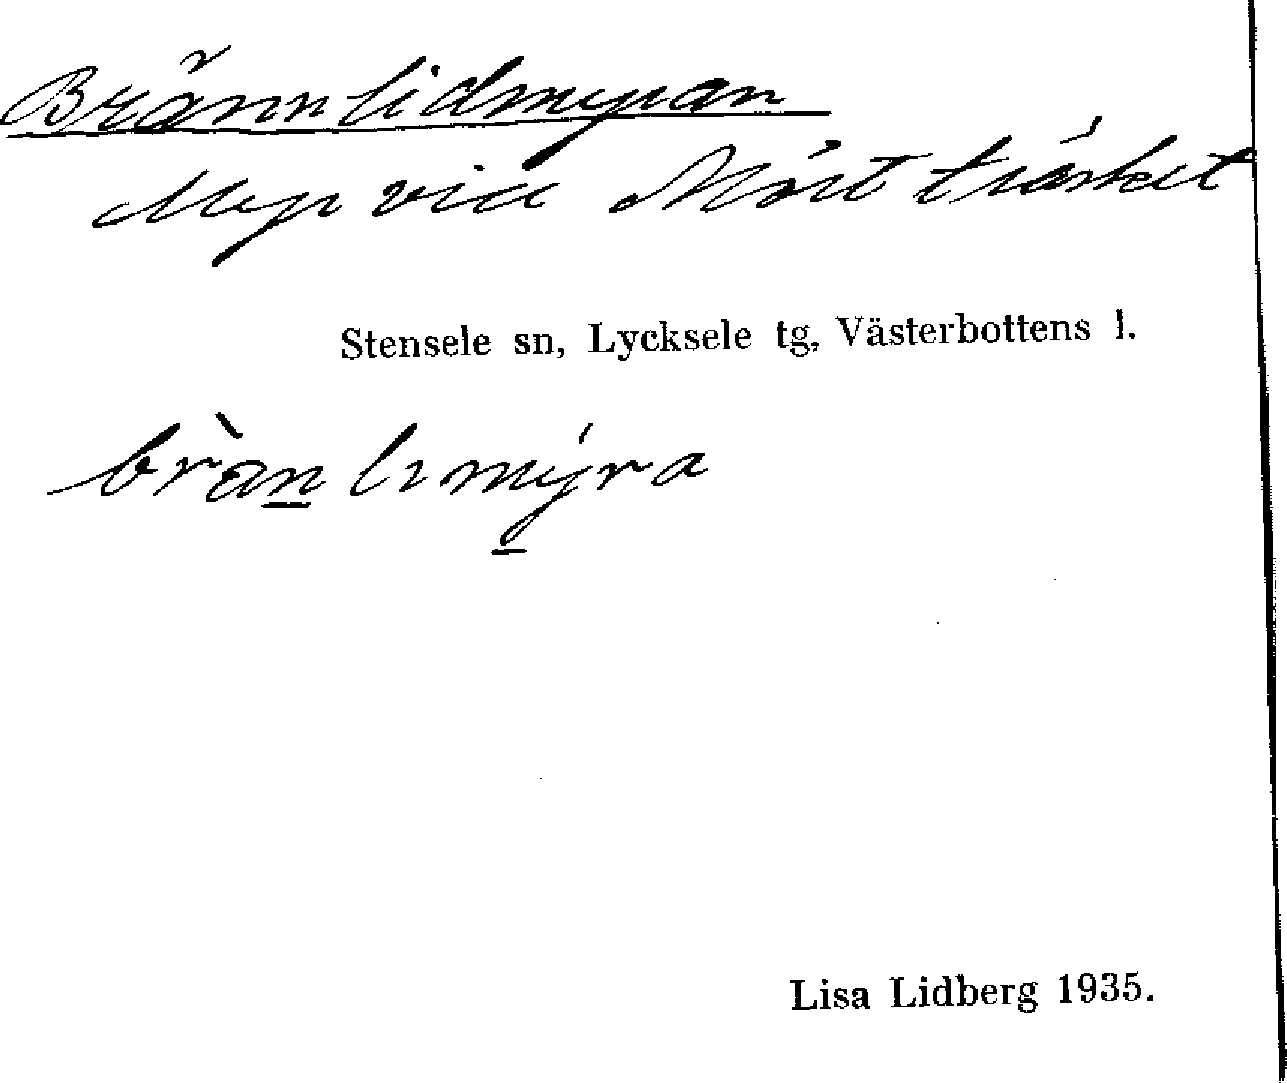 Brännlidmyran
Myr vid Mörtträsket
Stensele sn, Lycksele tg, Västerbottens l.
brànlımýra
Lisa Lidberg 1935.